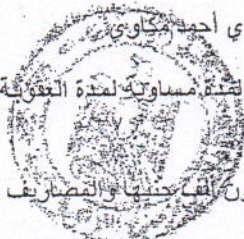 ي أحمد مكاوي
لمدة مساوية لمدة العقوبة
ون ألف جنيها والمصاريف